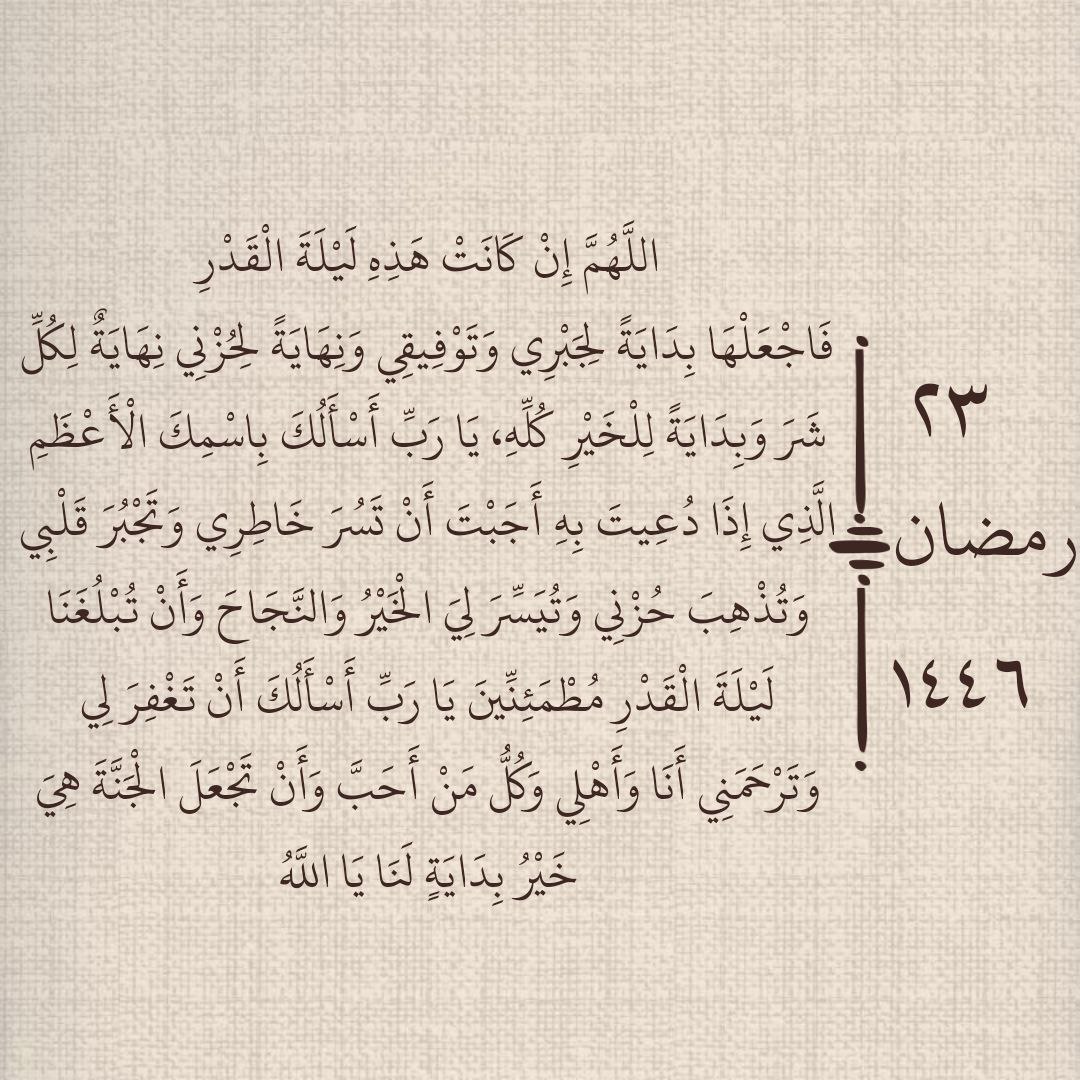 ٢٣
رمضان
١٤٤٦
اللَّهُمَّ إِنْ كَانَتْ هَذِهِ لَيْلَةَ الْقَدْرِ
فَاجْعَلْهَا بِدَايَةً لِجَبْرِي وَتَوْفِيقِي وَنِهَايَةً لِحُزْنِي نِهَايَةٌ لِكُلِّ
شَرَ وَبِدَايَةً لِلْخَيْرِ كُلِّهِ، يَا رَبِّ أَسْأَلُكَ بِاسْمِكَ الْأَعْظَمِ
الَّذِي إِذَا دُعِيتَ بِهِ أَجَبْتَ أَنْ تَسُرَ خَاطِرِي وَتَجْبُرَ قَلْبِي
وَتُذْهِبَ حُزْنِي وَتُيَسِّرَ لِيَ الْخَيْرُ وَالنَّجَاحَ وَأَنْ تُبْلُغَنَا
لَيْلَةَ الْقَدْرِ مُطْمَئِنِّينَ يَا رَبِّ أَسْأَلُكَ أَنْ تَغْفِرَ لِي
وَتَرْحَمَنِي أَنَا وَأَهْلِي وَكُلُّ مَنْ أَحَبَّ وَأَنْ تَجْعَلَ الْجَنَّةَ هِيَ
خَيْرُ بِدَايَةٍ لَنَا يَا اللَّهُ